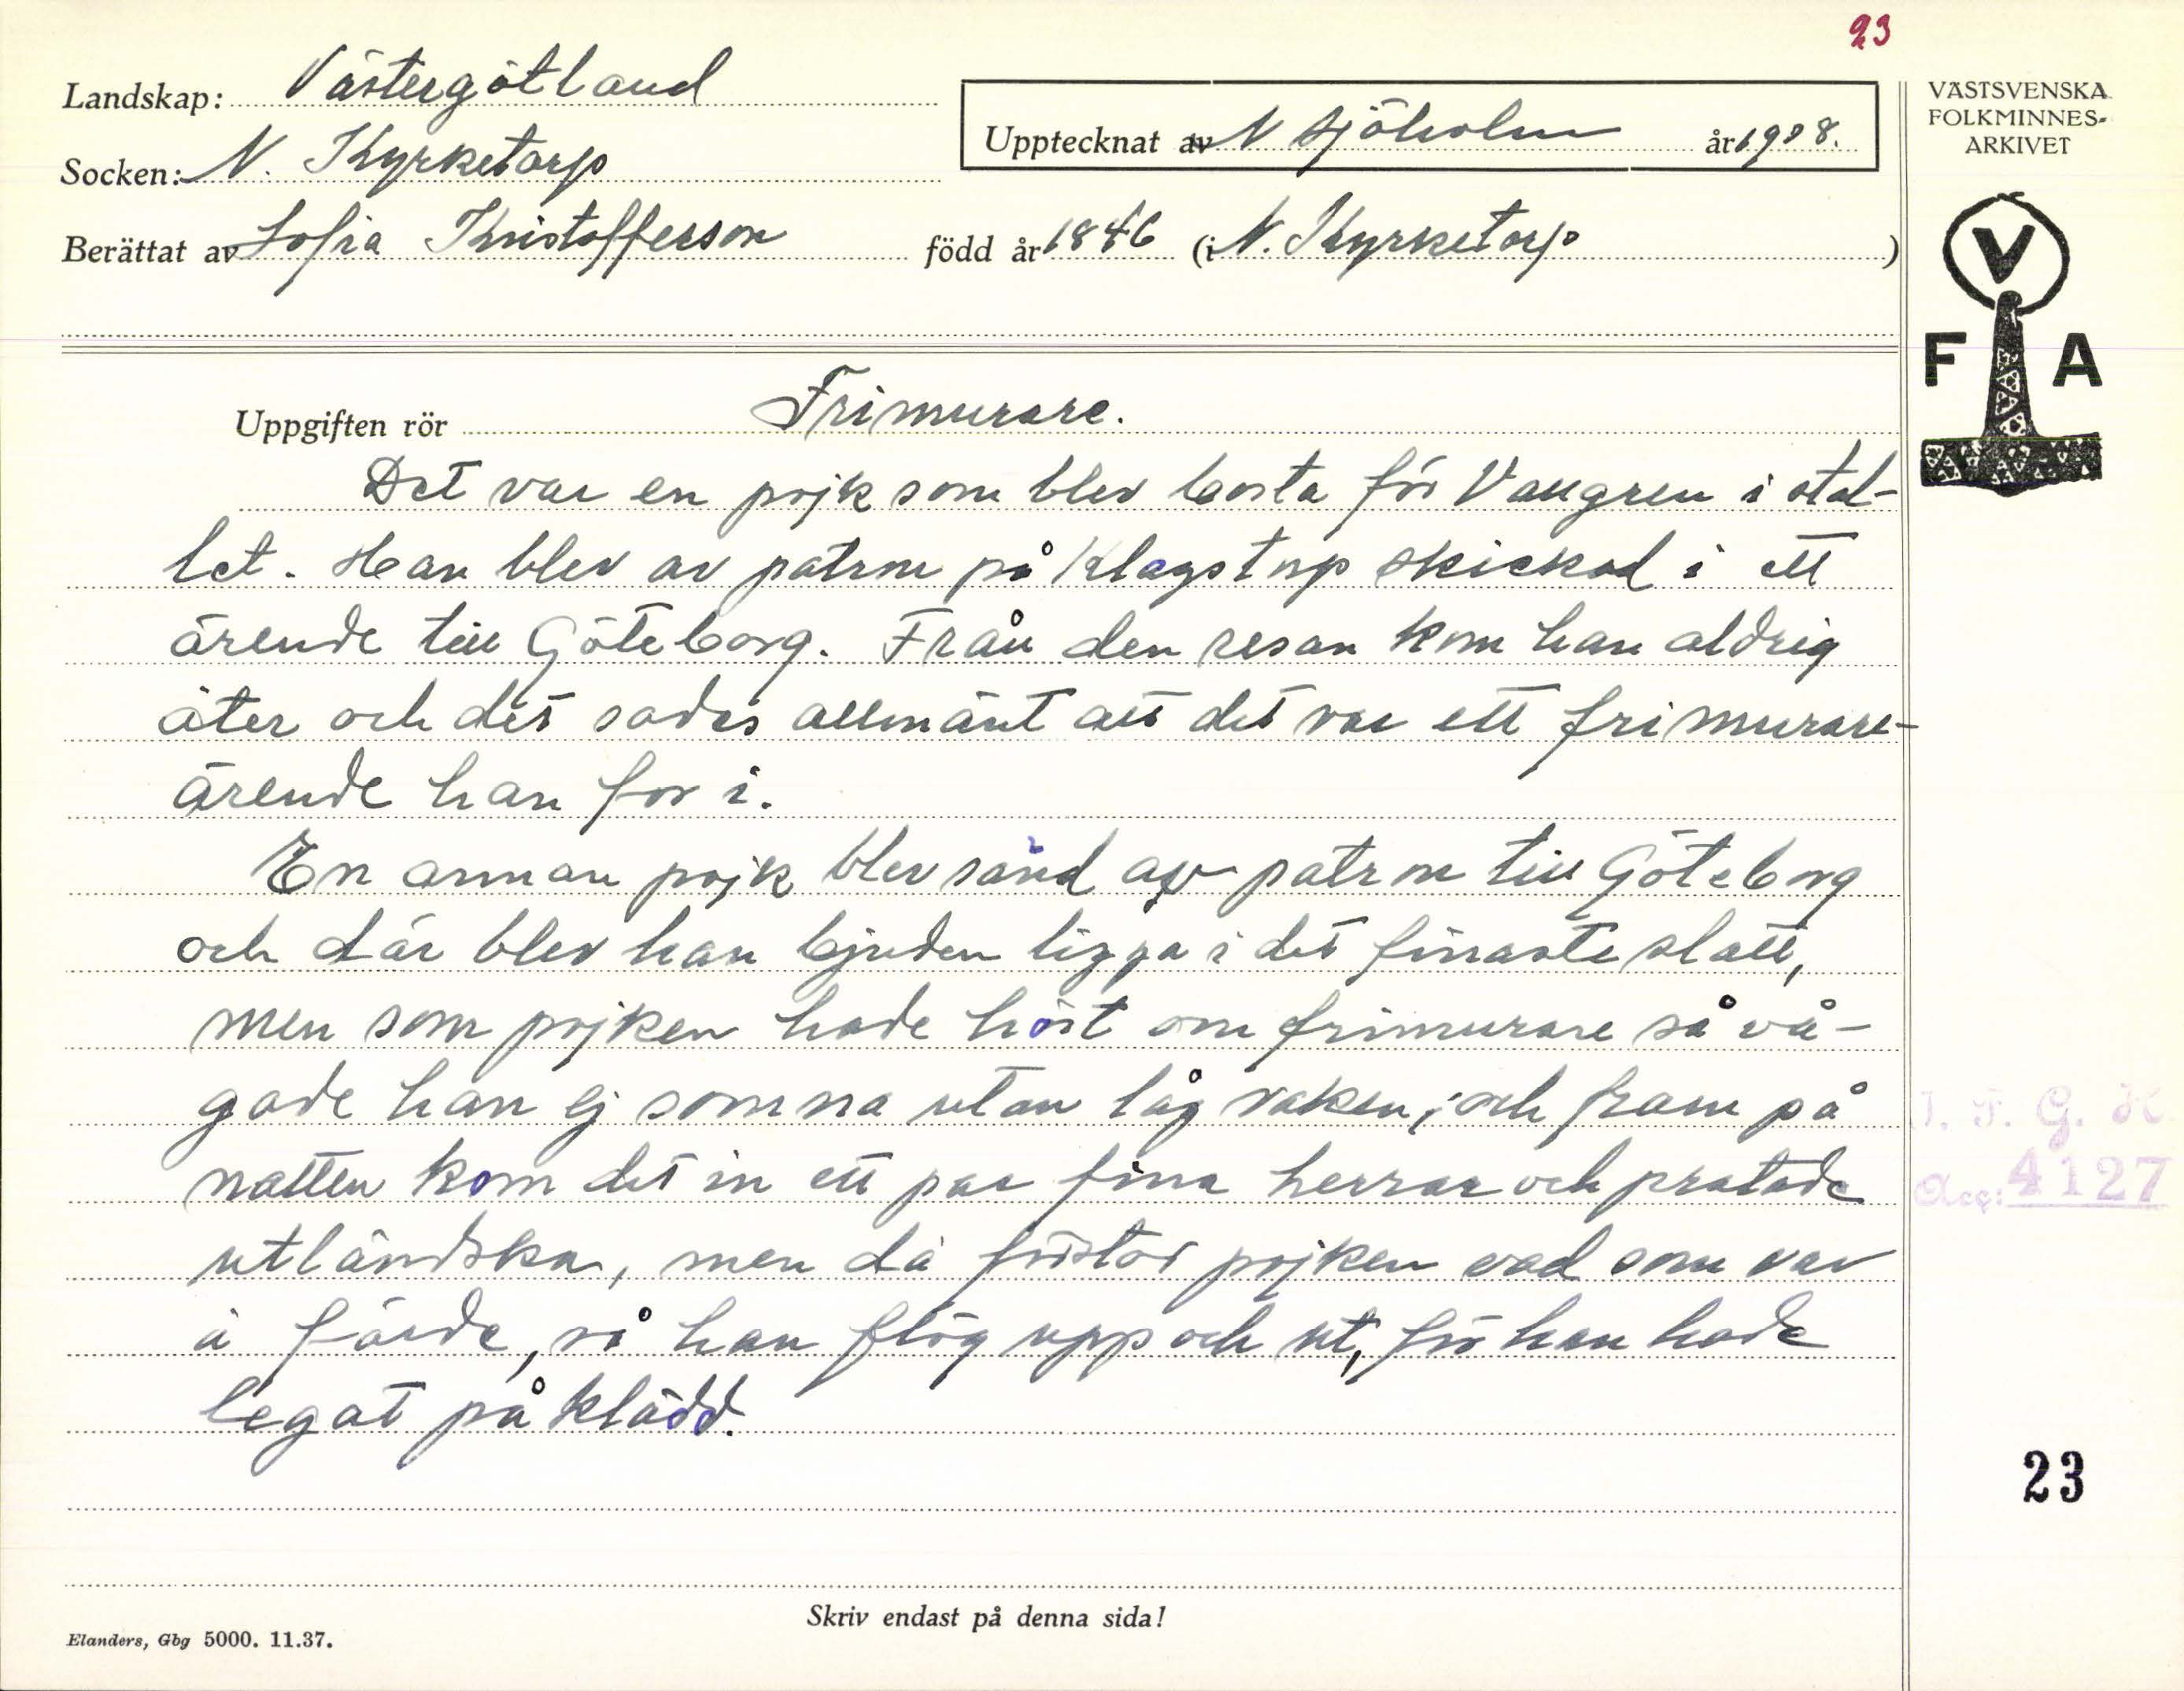 23
Landskap: Västergötland
Socken: N. Kyrketorp
Upptecknat av N Sjöholm år 1908.
Berättat av Sofia Kristoffersson född år 1846 (i N. Kyrketorp)
VÄSTSVENSKA
FOLKMINNES-
ARKIVET
V
F A
Uppgiften rör Frimurare.
Det var en pojk som blev borta för Vangren i stal-
let. Han blev av patron på Klagstorp skickad i ett
ärende till Göteborg. Från den resan kom han aldrig
åter och det sades allmänt att det var ett frimurare-
ärende han for i.
En annan pojk blev sänd av patron till Göteborg
och där blev han bjuden ligga i det finaste slott,
men som pojken hade hört om frimurare så vå-
gade han ej somna utan låg vaken; och fram på
natten kom det in ett par fina herrar och pratade
utländska, men då förstod pojken vad som var
å färde, så han flög upp och ut, för han hade
legat påklädd.
I. F. G. H.
Acc: 4127
23
Skriv endast på denna sida!
Elanders, Gbg 5000. 11.37.